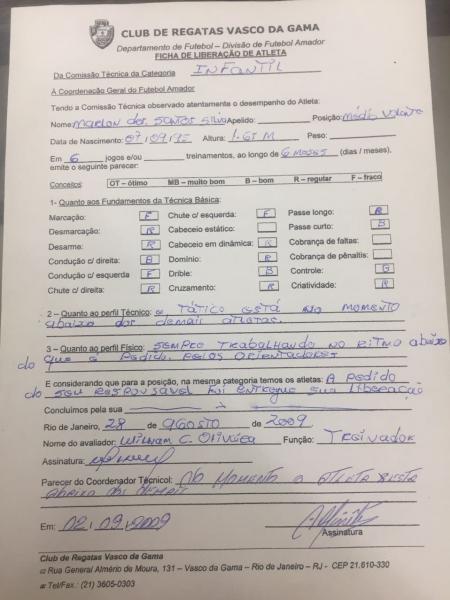 CLUB DE REGATAS VASCO DA GAMA
Departamento de Futebol – Divisão de Futebol Amador
FICHA DE LIBERAÇÃO DE ATLETA
Da Comissão Técnica da Categoria INFANTIL
A Coordenação Geral do Futebol Amador
Tendo a Comissão Técnica observado atentamente o desempenho do Atleta:
Nome: MARLON DOS SANTOS SILVA Apelido: Posição: Médio Volante
Data de Nascimento: 07/09/95 Altura: 1.65 M Peso:
Em 6 jogos e/ou treinamentos, ao longo de 6 MESES (dias / meses),
emite o seguinte parecer:
Conceitos: OT – ótimo MB – muito bom B – bom R – regular F – fraco
1- Quanto aos Fundamentos da Técnica Básica:
Marcação: F Chute c/ esquerda: F Passe longo: R
Desmarcação: R Cabeceio estático: Passe curto: B
Desarme: R Cabeceio em dinâmica: R Cobrança de faltas:
Condução c/ direita: B Domínio: R Cobrança de pênaltis:
Condução c/ esquerda F Drible: B Controle:
Chute c/ direita: R Cruzamento: R Criatividade: R
2 – Quanto ao perfil Técnico: e TÁTICO ESTÁ NO MOMENTO
abaixo dos demais atletas.
3 – Quanto ao perfil Físico: SEMPRE TRABALHANDO NO RITMO abaixo
do que é pedido pelos orientadores
E considerando que para a posição, na mesma categoria temos os atletas: A pedido
do seu responsável foi entregue sua liberação
Concluímos pela sua
Rio de Janeiro, 28 de agosto de 2009
Nome do avaliador: William C. Oliveira Função: Treinador
Assinatura:
Parecer do Coordenador Técnico: No MOMENTO o ATLETA ESTA
ABAIXO DOS DEMAIS
Em: 02/09/2009
Assinatura
Club de Regatas Vasco da Gama
Rua General Almério de Moura, 131 – Vasco da Gama – Rio de Janeiro – RJ - CEP 21.610-330
Tel/Fax.: (21) 3605-0303